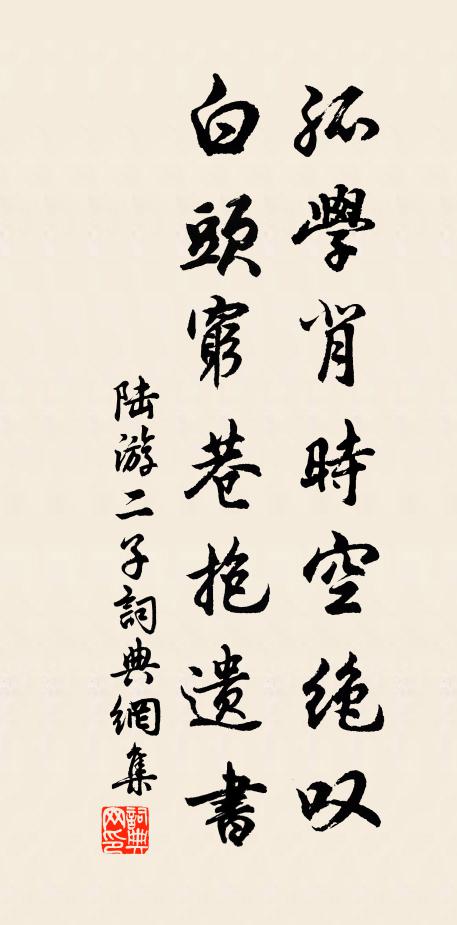 孤學背時空絶叹
白頭窮巷抱遺書
陸游二子詞典網集
詞典網印